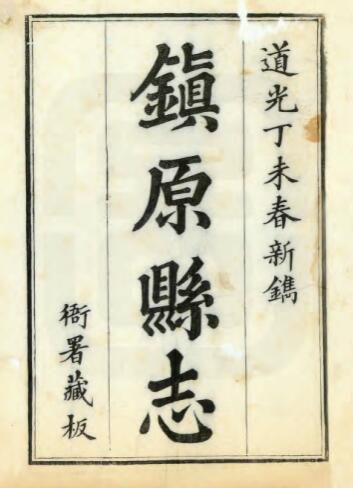 道光丁未春新鐫
鎭原縣志
衙署藏板